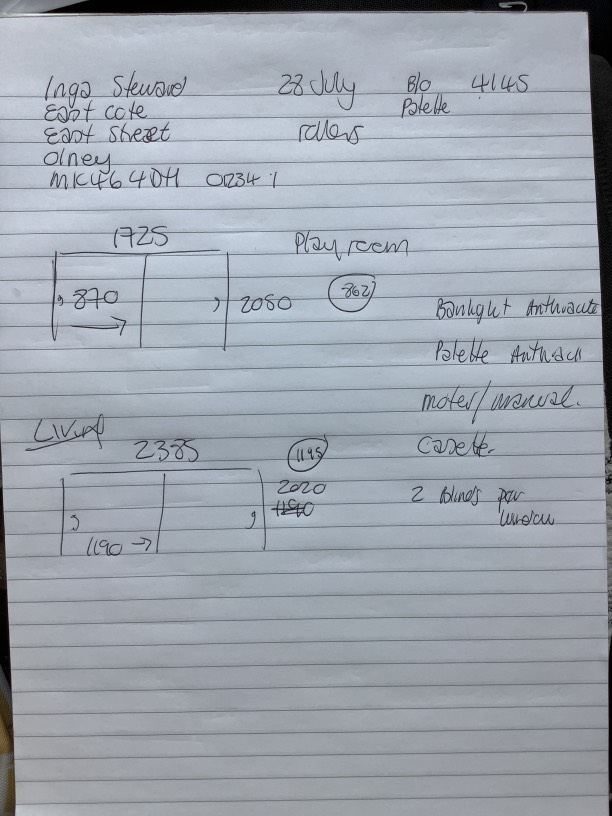 Inga Steward 28 July B/O 4145
East cote Palette
East Street rollers
Olney
MK46 4DH 01234 1
1725 Playroom
870 2080 862
Banlight Anthracite
Palette
motor/manual.
Living
2385 1195 Casette.
2020
1190
2 Blinds per
window
1190 →